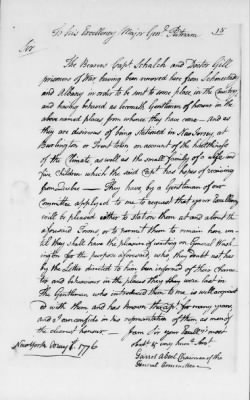 To his Excellency Major Genl. Putnam 15
Sir
The Bearers Capt. Schalch and Doctor Gill
prisoners of War, having been removed here from Schenectady
and Albany in order to be sent to some place in the Country
and having behaved as became Gentlemen of honour in the
above named places from whence they have come – And as
they are desirous of being stationed in New Jersey, at
Burlington or Trent Town on account of the healthiness
of the Climate, as well as the small family of a wife and
five Children which the said Capt. has hopes of receiving
from Quebec – They have by a Gentleman of our
Committee applyed to me to request that your Excellency
will be pleased either to station them at and about the
aforesaid Towns, or to permit them to remain here un
till they shall have the pleasure of waiting on General Wash
ington for the purpose aforesaid, who they doubt not has
by the Letter directed to him been informed of their Charac
ters and behaviour in the places they they were last in
The Gentleman, who introduced them to me, is well acquaint
ed with them and has known the Capt. for many years,
and I can confide in his representation of them, as men of
the clearest honour. – from Sir your Excell's most
obedt & very hum Servt
Garret Abeel Chairman of the
General Committee
New York May 1776